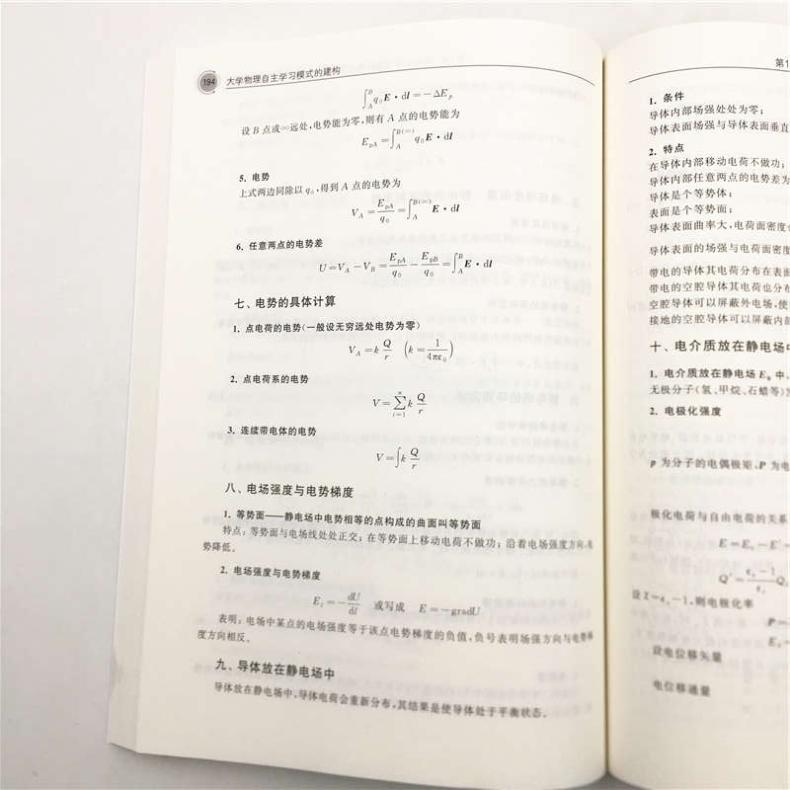 194 大学物理自主学习模式的建构
∫_A^B q₀E·dl=-ΔE_p
设B点或∞远处,电势能为零,则有A点的电势能为
E_pA=∫_A^B(∞) q₀E·dl
5. 电势
上式两边同除以q₀,得到A点的电势为
V_A=E_pA/q₀=∫_A^B(∞) E·dl
6. 任意两点的电势差
U=V_A-V_B=E_pA/q₀-E_pB/q₀=∫_A^B E·dl
七、电势的具体计算
1. 点电荷的电势(一般设无穷远处电势为零)
V_A=k Q/r (k=1/4πε₀)
2. 点电荷系的电势
V=∑_{i=1}^n k Q/r
3. 连续带电体的电势
V=∫k Q/r
八、电场强度与电势梯度
1. 等势面——静电场中电势相等的点构成的曲面叫等势面
特点:等势面与电场线处处正交;在等势面上移动电荷不做功;沿着电场强度方向,电
势降低。
2. 电场强度与电势梯度
E_l=-dU/dl 或写成 E=-gradU
表明:电场中某点的电场强度等于该点电势梯度的负值,负号表明场强方向与电势梯
度方向相反。
九、导体放在静电场中
导体放在静电场中,导体电荷会重新分布,其结果是使导体处于平衡状态。
第1
1. 条件
导体内部场强处处为零;
导体表面场强与导体表面垂直
2. 特点
在导体内部移动电荷不做功;
导体内部任意两点的电势差为
导体是个等势体;
表面是个等势面;
导体表面曲率大,电荷面密度
导体表面的场强与电荷面密度
带电的导体其电荷分布在表面
带电的空腔导体其电荷也分布
空腔导体可以屏蔽外电场,使
接地的空腔导体可以屏蔽内部
十、电介质放在静电场中
1. 电介质放在静电场E₀中,
无极分子(氢、甲烷、石蜡等)
2. 电极化强度
p为分子的电偶极矩,P为电
极化电荷与自由电荷的关系
E=E₀-E'=
Q'=(ε_r-1)/ε_r Q
设X=ε_r-1,则电极化率
P=
设电位移矢量
电位移通量